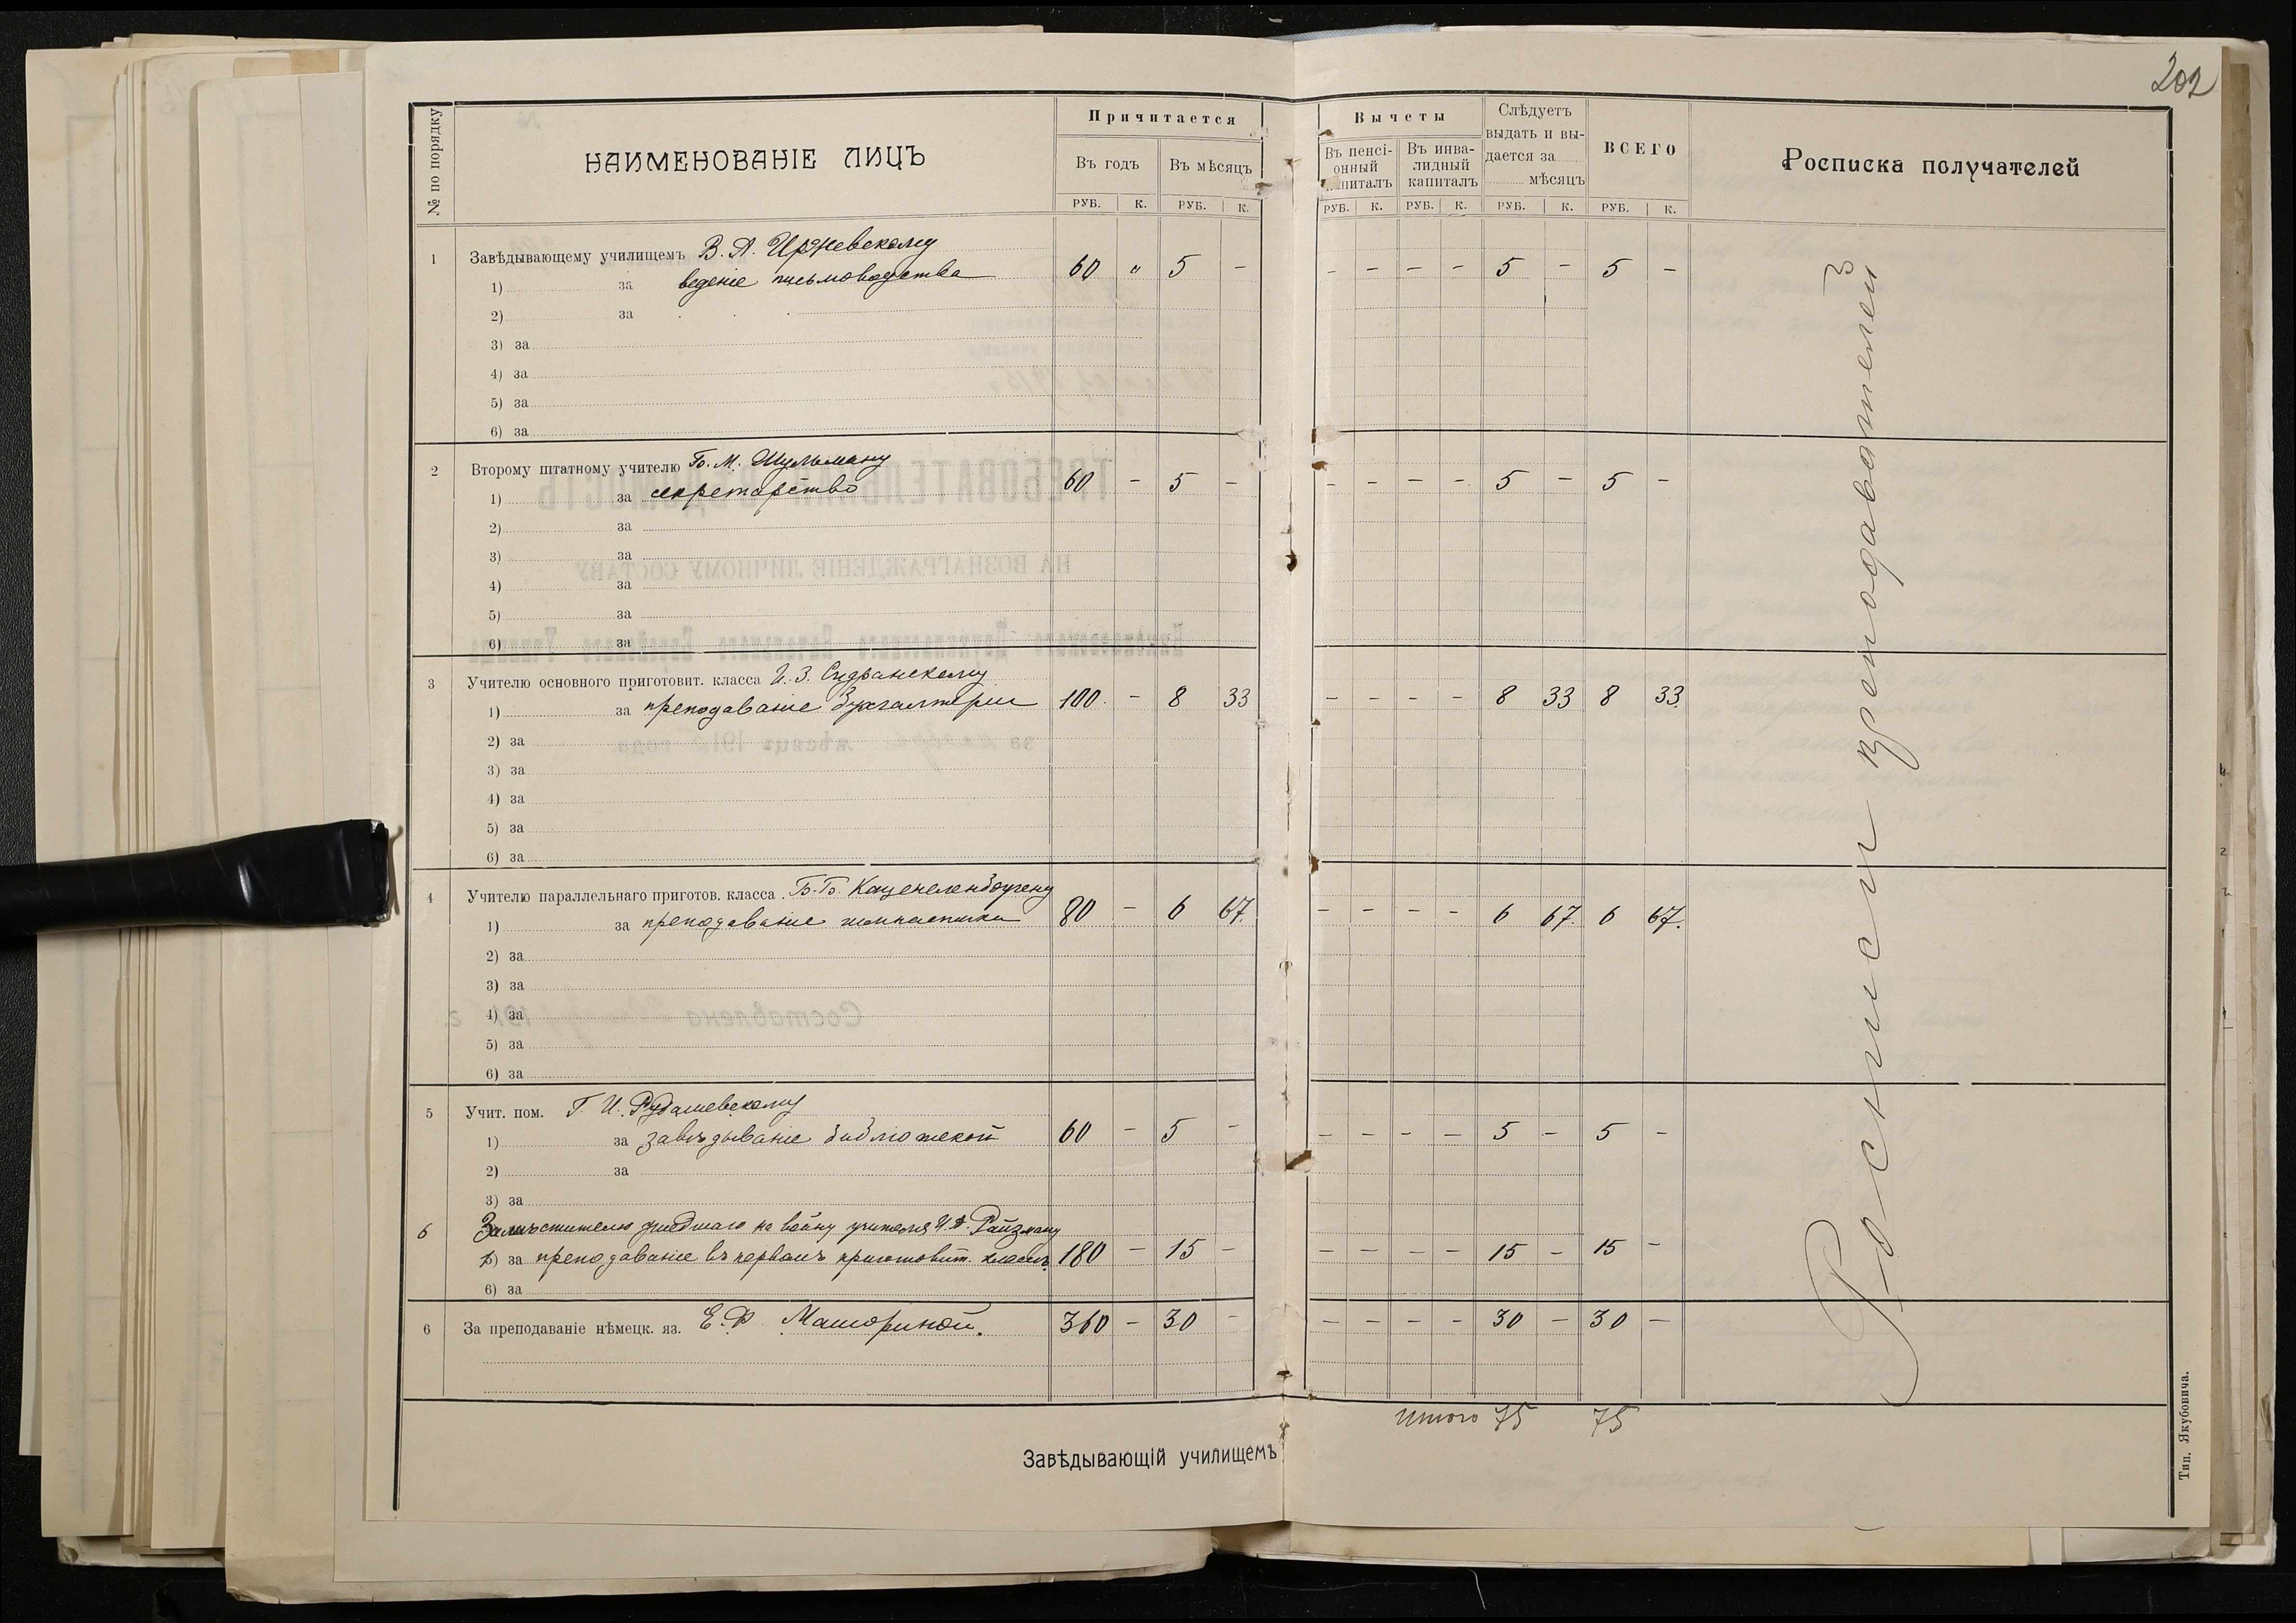 202
№ по порядку
НАИМЕНОВАНІЕ ЛИЦЪ
Причитается
Въ годъ
Въ мѣсяцъ
РУБ. К. РУБ. К.
Вычеты
Въ пенсі-
онный
капиталъ
Въ инва-
лидный
капиталъ
Слѣдуетъ
выдать и вы-
дается за
мѣсяцъ
ВСЕГО
РУБ. К. РУБ. К. РУБ. К. РУБ. К.
Росписка получателей
1 Завѣдывающему училищемъ В. А.
1) за веденіе письмоводства 60 " 5 – – – – – 5 – 5 –
2) за
3) за
4) за
5) за
6) за
2 Второму штатному учителю Б. М. Шульману
1) за секретарство 60 – 5 – – – – – 5 – 5 –
2) за
3) за
4) за
5) за
6) за
3 Учителю основного приготовит. класса И. З. Сидранскому
1) за преподаваніе бухгалтеріи 100 – 8 33 – – – – 8 33 8 33
2) за
3) за
4) за
5) за
6) за
4 Учителю параллельнаго приготов. класса Б. Б. Каценеленбогену
1) за преподаваніе гимнастики 80 – 6 67 – – – – 6 67 6 67
2) за
3) за
4) за
5) за
6) за
5 Учит. пом. Г. И. Рубашевскому
1) за завѣдываніе библіотекой 60 – 5 – – – – – 5 – 5 –
2) за
3) за
6 Замѣстителю ушедшаго на войну учителя И. А. Райзману
5) за преподаваніе въ первомъ приготовит. классѣ 180 – 15 – – – – – 15 – 15 –
6) за
6 За преподаваніе нѣмецк. яз. Е. Ф. Машориной. 360 – 30 – – – – – 30 – 30 –
Итого 75 75
Росписи преподавателей
Завѣдывающій училищемъ
Тип. Якубовича.